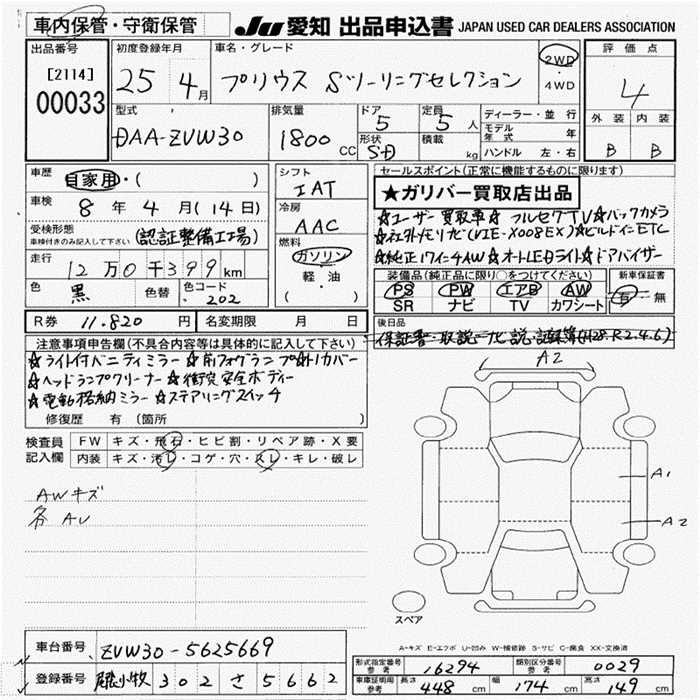 車内保管・守衛保管
JU 愛知 出品申込書 JAPAN USED CAR DEALERS ASSOCIATION
出品番号
[2114]
00033
初度登録年月
25 4月
車名・グレード
プリウス Sツーリングセレクション
2WD
・
4WD
評価点
4
外装 内装
B B
型式
DAA-ZVW30
排気量
1800 CC
ドア
5
形状
SD
定員
5 人
積載
kg
ディーラー・並行
モデル年式 年
ハンドル 左・右
車歴
自家用・( )
車検
8年 4月 (14日)
受検形態
車検付きのみ記入して下さい
(認証整備工場)
走行
12万0千399km
色
黒
色替
色コード
202
シフト
IAT
冷房
AAC
燃料
ガソリン
軽・油
( )
セールスポイント(正常に機能するものに限ります。)
★ガリバー買取店出品
☆ユーザー買取車☆フルセグTV☆バックカメラ
☆社外メモリナビ(VIE-X008EX)☆ビルドインETC
☆純正17インチAW☆オートLEDライト☆ドアバイザー
装備品(純正品に限り○をつけてください)
PS PW エアB AW
SR ナビ TV カワシート
新車保証書
有・無
R券 11.820 円
名変期限 月 日
後日品
保証書・取説・ナビ説・記録簿(H28.R2.4.6)
注意事項申告欄(不具合内容等は具体的に記入して下さい)
☆ライト付バニティミラー ☆前フォグランプ ☆トノカバー
☆ヘッドランプクリーナー ☆衝突安全ボディー
☆電動格納ミラー ☆ステアリングスイッチ
修復歴 有 (箇所 )
検査員
記入欄
FW キズ・飛石・ヒビ割・リペア跡・X要
内装 キズ・汚レ・コゲ・穴・スレ・キレ・破レ
AWキズ
各AU
A2
A1
A2
スペア
A-キズ E-エクボ U-凹み W-補修跡 S-サビ C-腐食 XX-交換済
車台番号 ZVW30-5625669
登録番号 尾張小牧 302 さ 5662
形式指定番号
参考
16294
類別区分番号
参考
0029
車庫証明用
参考
長さ 448 cm 幅 174 cm 高さ 149 cm